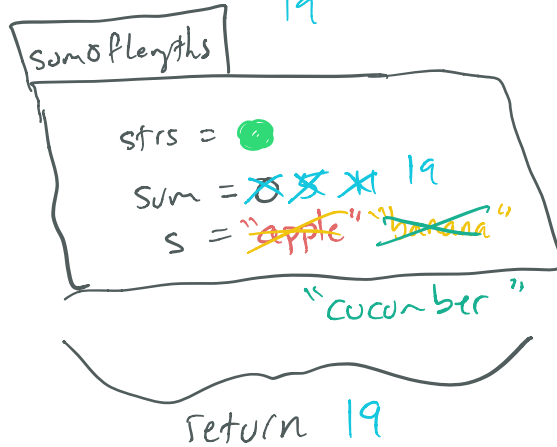 19
sumOflengths
strs =
sum = 0 5 11 19
s = "apple" "banana"
"cucumber"
return 19